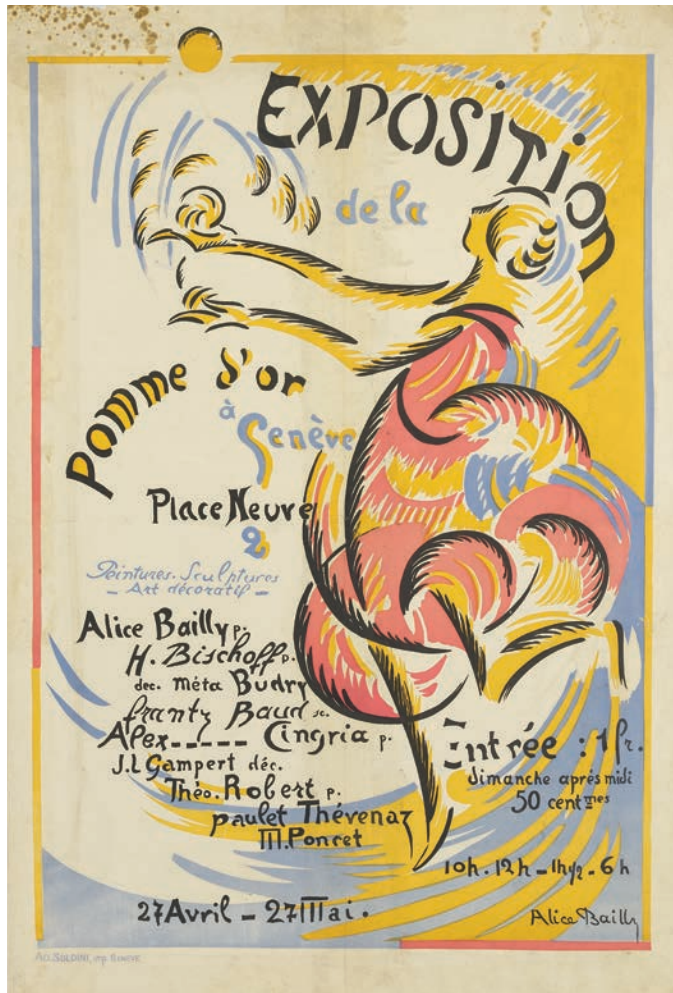 EXPOSITION
de la
pomme d'or
à
Genève
Place Neuve
2
Peintures. Sculptures
– Art décoratif –
Alice Bailly p.
H. Bischoff p.
dec. Méta Budry
frantz Baud sc.
Alex----- Cingria p.
J.L Gampert déc.
Théo. Robert p.
paulet Thévenaz
M. Poncet
Entrée : 1 fr.
dimanche après midi
50 centmes
10h. 12h – 1h1/2 - 6 h
27 Avril – 27 Mai.
Alice Bailly
AD. SOLDINI, imp. GENÈVE